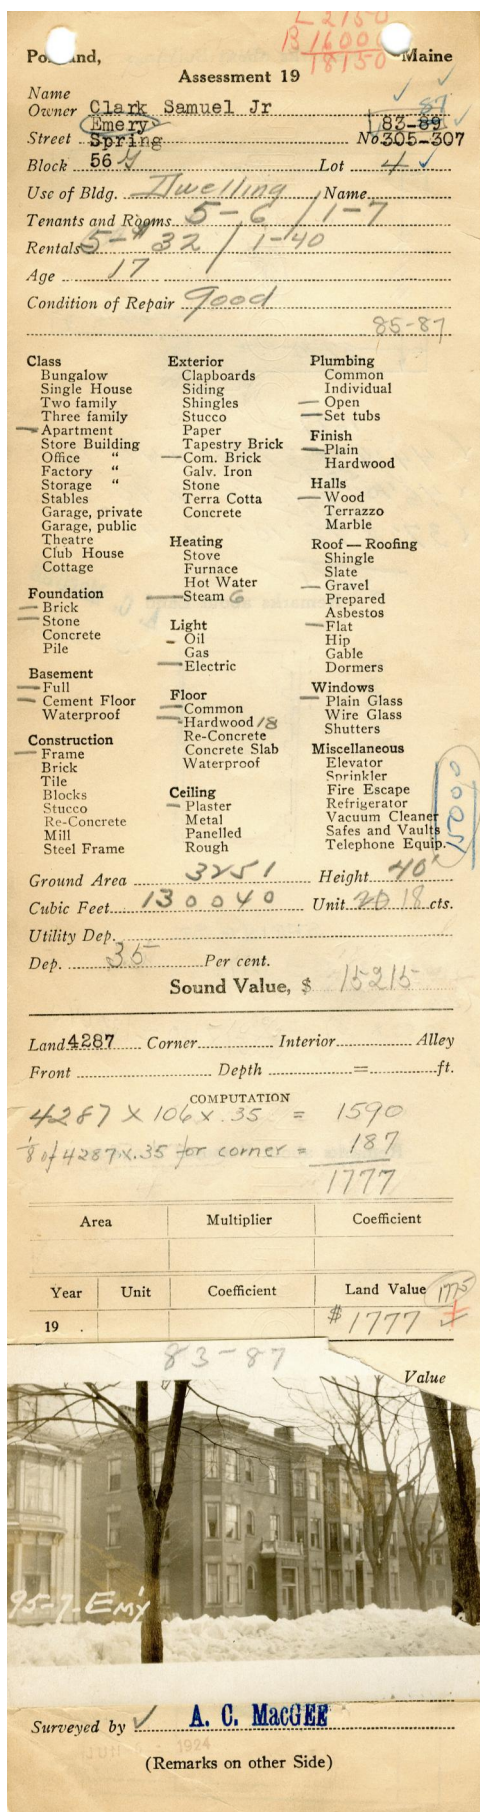 L 2150
B 16000
18150
Portland, Maine
Assessment 19
Name
Owner Clark Samuel Jr
87
Emery 83-89
Street Spring No 305-307
Block 56 G Lot 4
Use of Bldg. Dwelling Name
Tenants and Rooms 5-6 / 1-7
Rentals 5-$32 / 1-40
Age 17
Condition of Repair good
85-87
Class
Bungalow
Single House
Two family
Three family
Apartment
Store Building
Office "
Factory "
Storage "
Stables
Garage, private
Garage, public
Theatre
Club House
Cottage
Foundation
Brick
Stone
Concrete
Pile
Basement
Full
Cement Floor
Waterproof
Construction
Frame
Brick
Tile
Blocks
Stucco
Re-Concrete
Mill
Steel Frame
Exterior
Clapboards
Siding
Shingles
Stucco
Paper
Tapestry Brick
Com. Brick
Galv. Iron
Stone
Terra Cotta
Concrete
Heating
Stove
Furnace
Hot Water
Steam 6
Light
Oil
Gas
Electric
Floor
Common
Hardwood 18
Re-Concrete
Concrete Slab
Waterproof
Ceiling
Plaster
Metal
Panelled
Rough
Plumbing
Common
Individual
Open
Set tubs
Finish
Plain
Hardwood
Halls
Wood
Terrazzo
Marble
Roof — Roofing
Shingle
Slate
Gravel
Prepared
Asbestos
Flat
Hip
Gable
Dormers
Windows
Plain Glass
Wire Glass
Shutters
Miscellaneous
Elevator
Sprinkler
Fire Escape
Refrigerator
Vacuum Cleaner
Safes and Vaults
Telephone Equip.
Ground Area 3251 Height 40'
Cubic Feet 130040 Unit 20 18 cts.
Utility Dep.
Dep. 35 Per cent.
Sound Value, $ 15215
Land 4287 Corner Interior Alley
Front Depth = ft.
COMPUTATION
4287 X 106 x .35 = 1590
1/8 of 4287 x .35 for corner = 187
1777
Area Multiplier Coefficient
Year Unit Coefficient Land Value 1775
19 $ 1777
83-87
Value
95-7-EMY
Surveyed by A. C. MacGEE
1924
(Remarks on other Side)